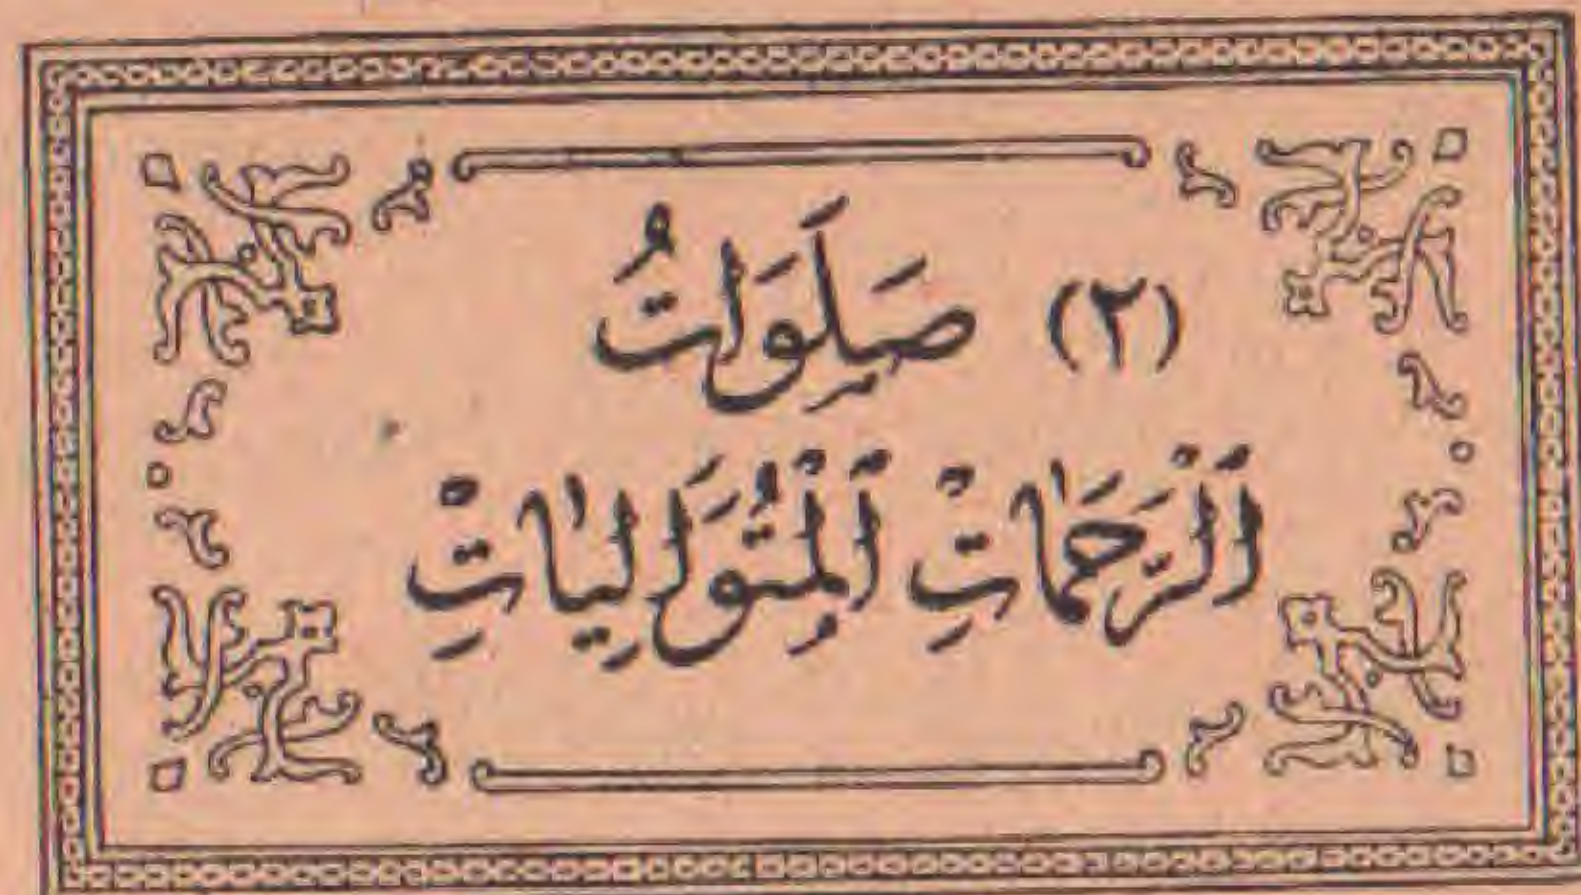 (٢) صَلَوَاتُ
ٱلرَّحَمَاتِ ٱلْمُتَوَالِيَاتِ